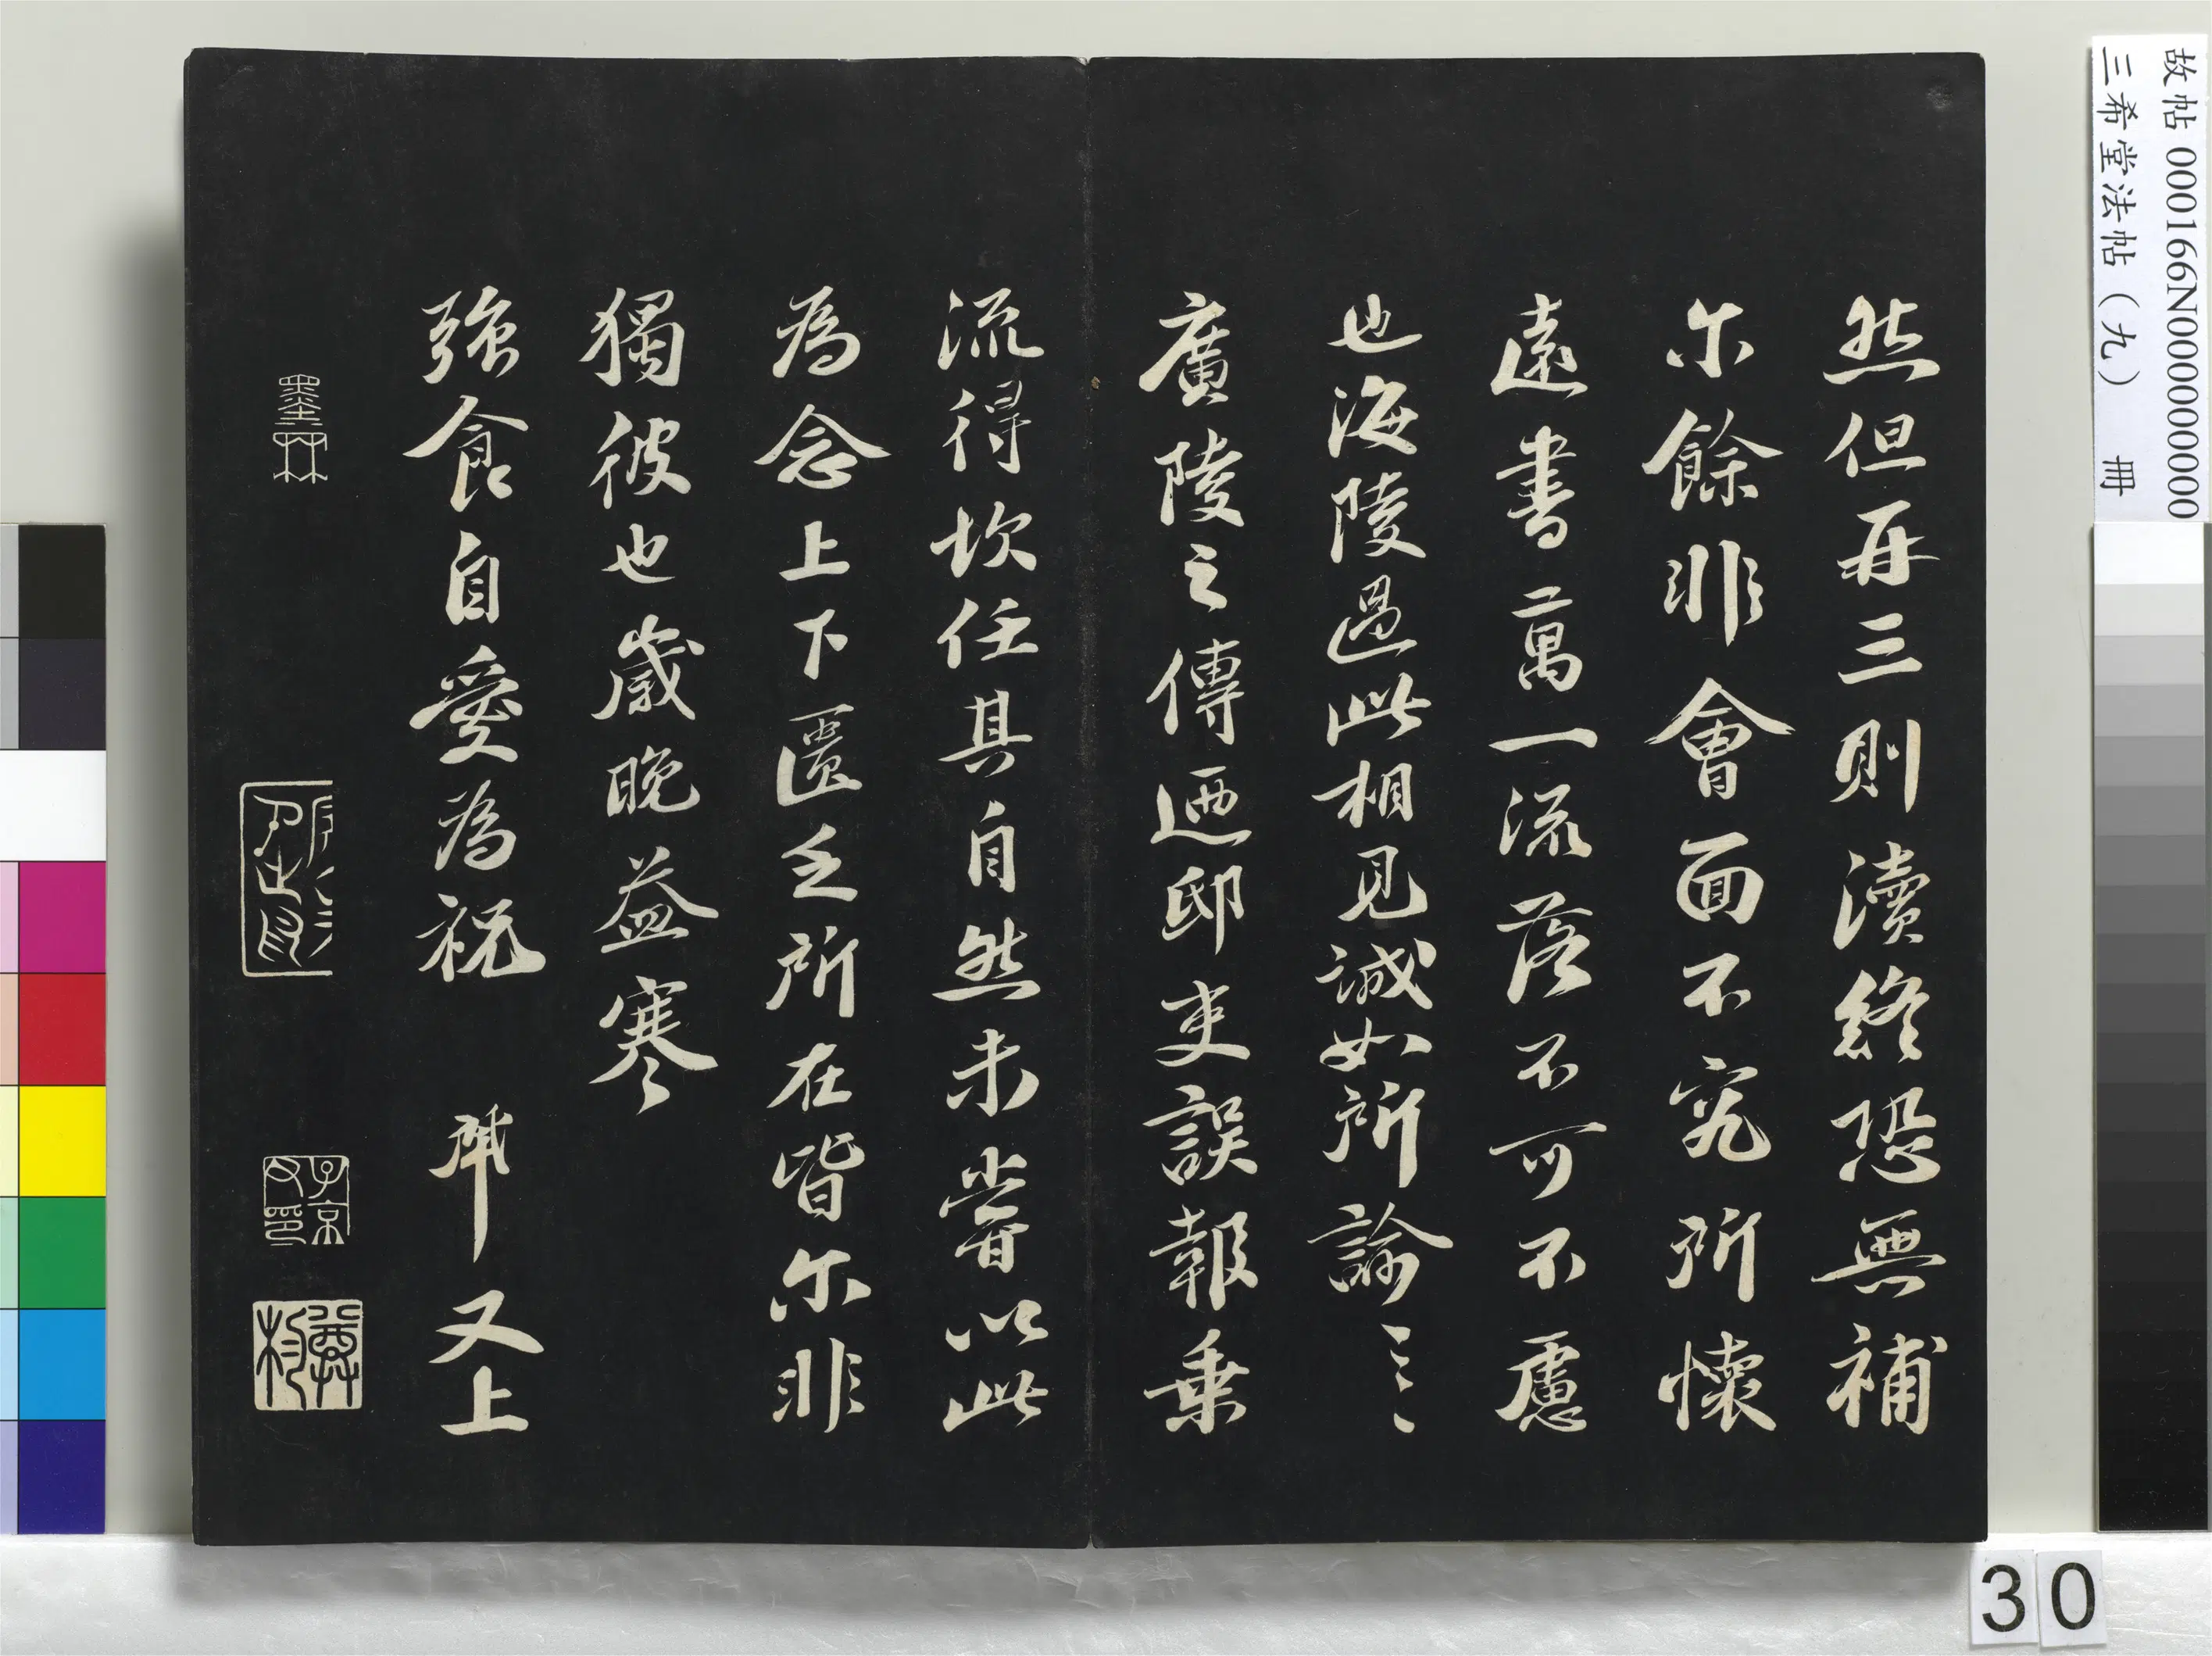 然但再三則瀆終恐無補
尓餘非會面不究所懷
遠書萬一流落不可不慮
也海陵過此相見誠如所諭〻〻
廣陵之傳迺邸吏誤報乗
流得坎任其自然未嘗以此
為念上下匱乏所在皆尓非
獨彼也歲晚益寒
強食自愛為祝 又上
墨林
子京父印
故帖 000166N000000000
三希堂法帖（九） 冊
30